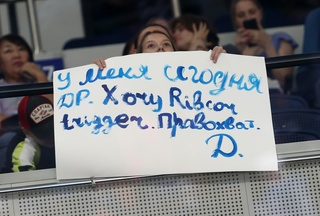 у меня сегодня
ДР. Хочу Ribcor
trigger. Правохват.
D.